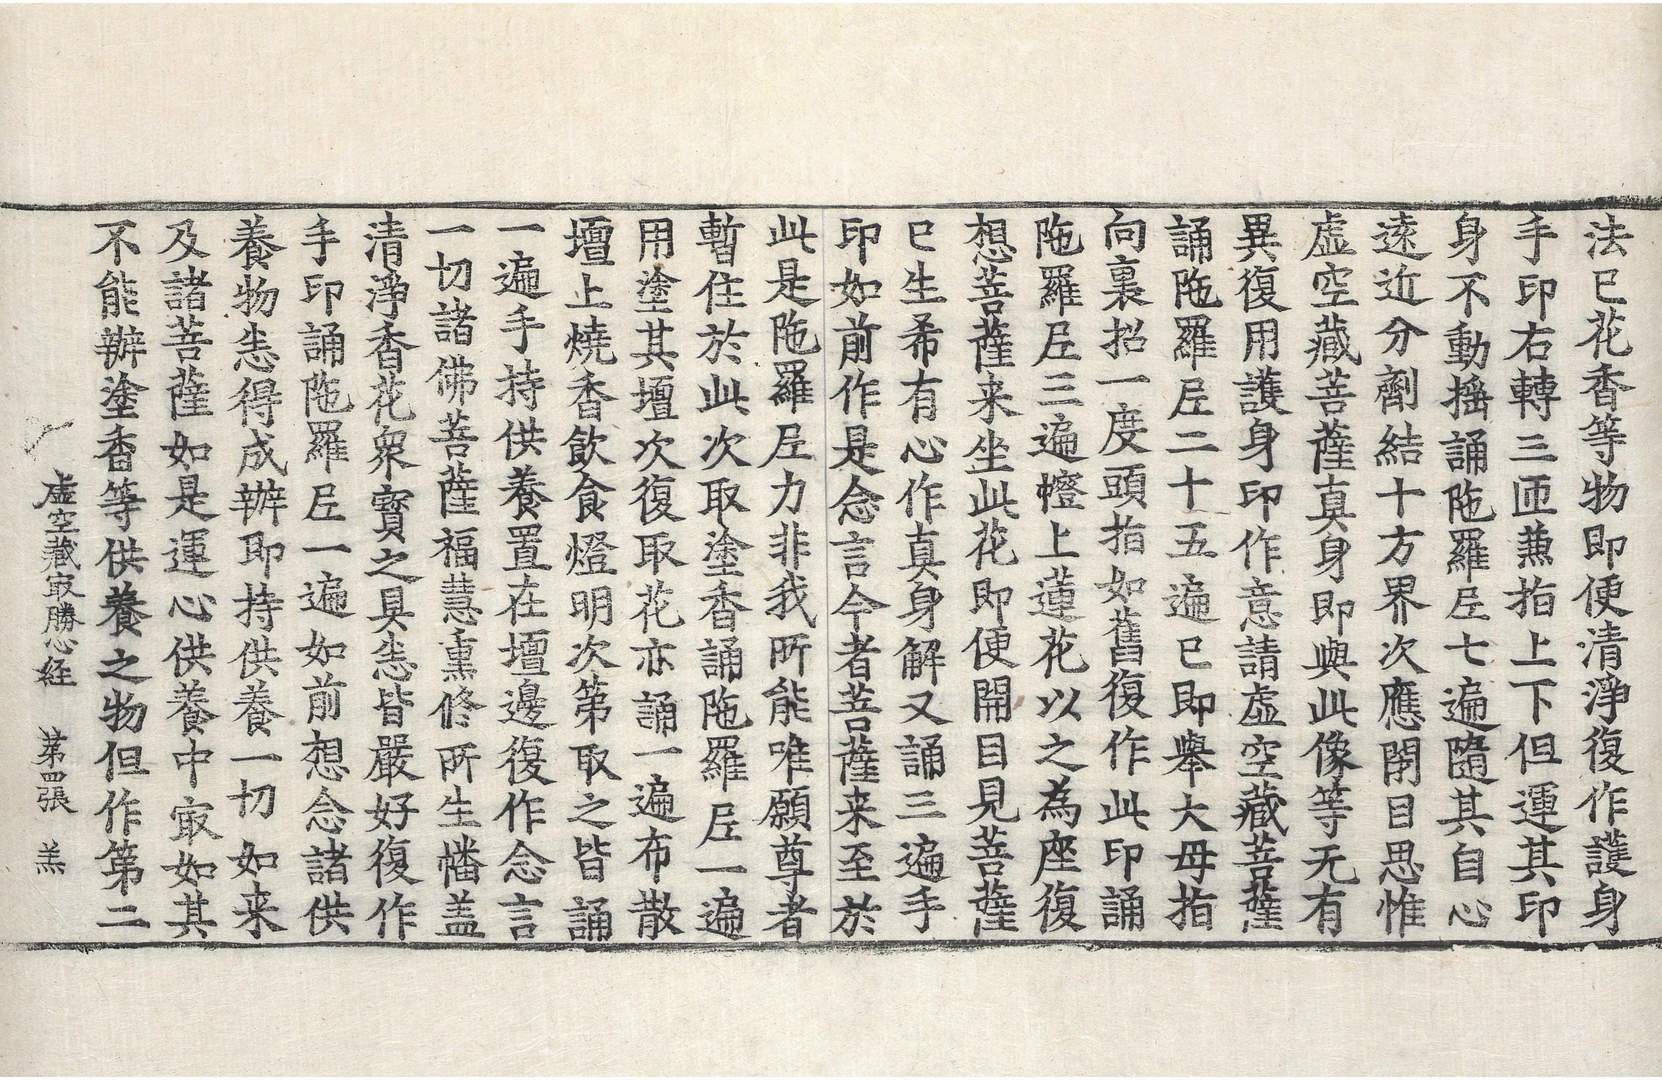 法已花香等物即便清淨復作護身
手印右轉三匝兼指上下但運其印
身不動摇誦陁羅𡰱七遍隨其自心
遠近分劑結十方界次應閇目思惟
虛空藏菩薩真身即與此像等无有
異復用護身印作意請虛空藏菩薩
誦陁羅𡰱二十五遍已即舉大母指
向裏招一度頭指如舊復作此印誦
陁羅𡰱三遍壇上蓮花以之為座復
想菩薩来坐此花即便開目見菩薩
已生希有心作真身解又誦三遍手
印如前作是念言今者菩薩来至於
此是陁羅𡰱力非我所能唯願尊者
暫住於此次取塗香誦陁羅𡰱一遍
用塗其壇次復取花亦誦一遍布散
壇上燒香飲食燈明次第取之皆誦
一遍手持供養置在壇邊復作念言
一切諸佛菩薩福慧熏修所生幡盖
清淨香花衆寳之具𢘻皆嚴好復作
手印誦陁羅𡰱一遍如前想念諸供
養物𢘻得成辦即持供養一切如来
及諸菩薩如是運心供養中㝡如其
不能辦塗香等供養之物但作第二
虛空藏㝡勝心経　第四張　羔